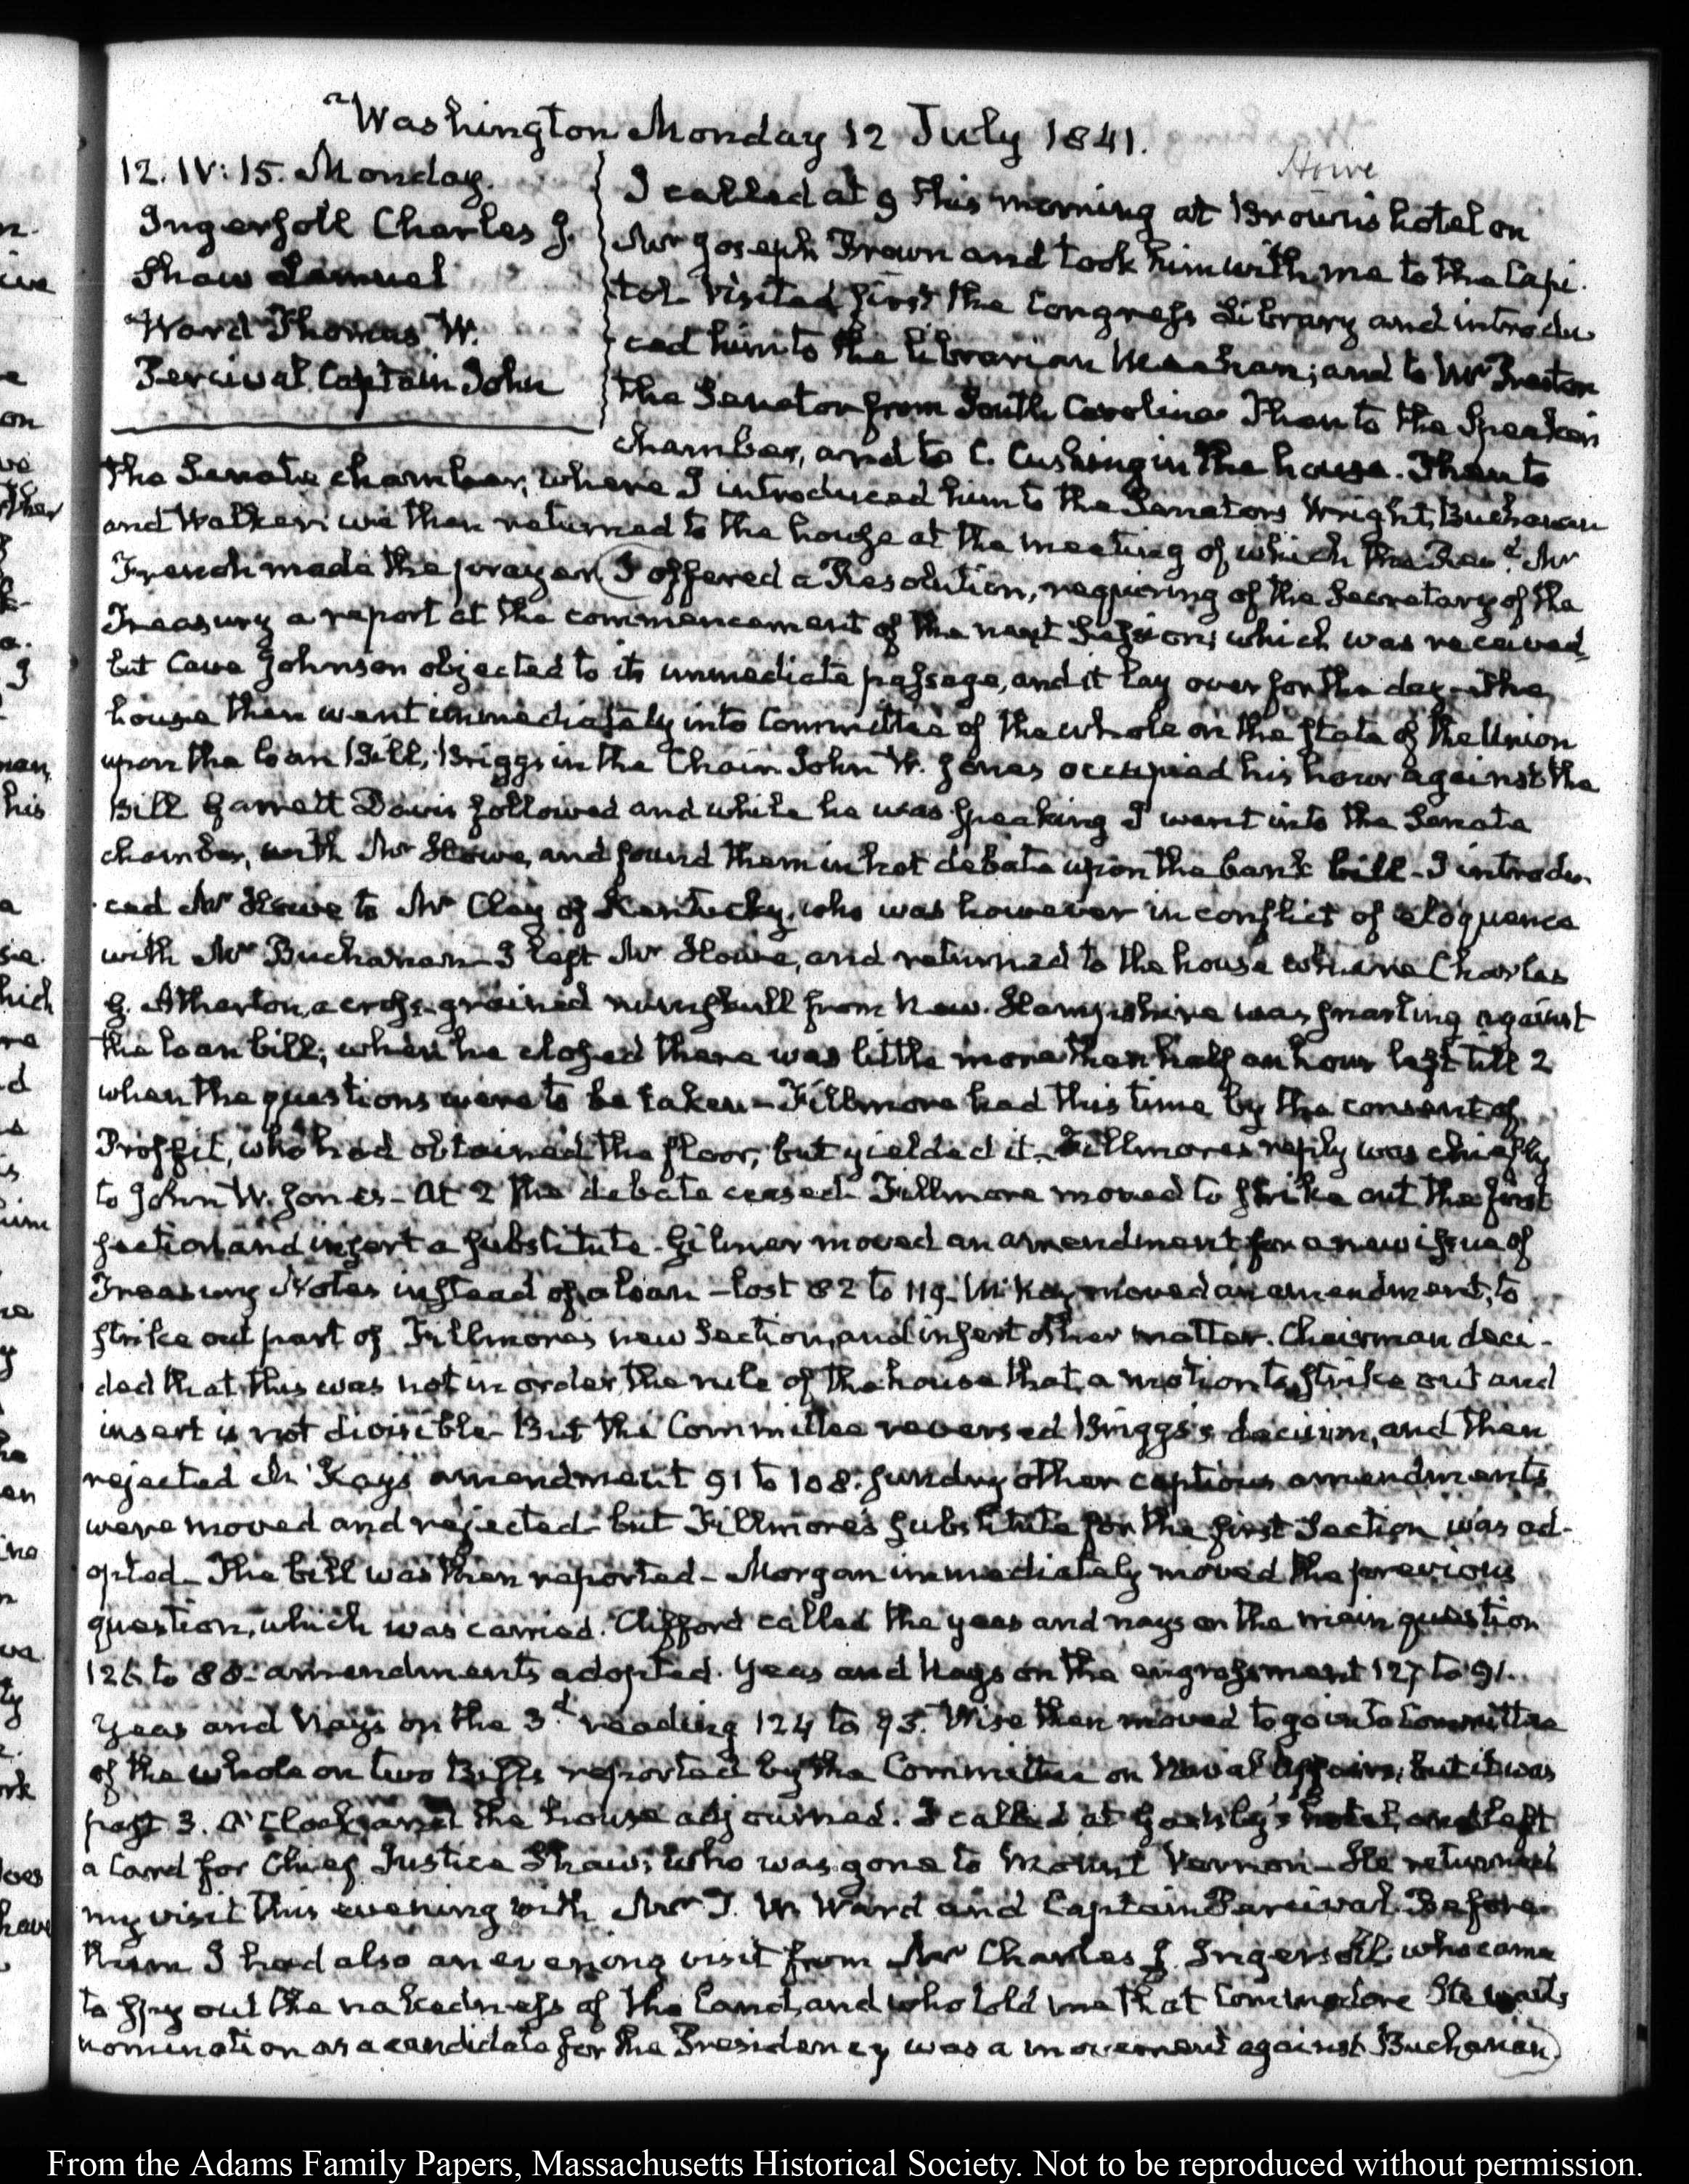 Washington Monday 12 July 1841.
12. IV: 15. Monday.
Ingersoll Charles J.
Shaw Lemuel
Ward Thomas W.
Percival Captain John
Howe
I called at 9 this morning at Brown's hotel on
Mr Joseph Brown and took him with me to the Capi-
tol. Visited first the Congress Library and introdu-
ced him to the Librarian Meehan; and to Mr Preston
the Senator from South Carolina. Then to the Speaker's
chamber, and to C. Cushing in the house. Then to
the Senate chamber, where I introduced him to the Senators Wright, Buchanan
and Walker: we then returned to the house at the meeting of which the Revd. Mr
French made the prayer. I offered a Resolution, requiring of the Secretary of the
Treasury a report at the commencement of the next Session; which was received,
but Cave Johnson objected to its immediate passage, and it lay over for the day. The
house then went immediately into Committee of the whole on the state of the Union
upon the loan Bill; Briggs in the Chair. John W. Jones occupied his hour against the
Bill. Garrett Davis followed and while he was speaking I went into the Senate
chamber, with Mr Howe, and found them in hot debate upon the bank bill - I introdu-
ced Mr Howe to Mr Clay of Kentucky, who was however in conflict of eloquence
with Mr Buchanan - I left Mr Howe, and returned to the house where Charles
G. Atherton, a cross-grained numskull from New-Hampshire was snarling against
the loan bill; when he closed there was little more than half an hour left till 2
when the questions were to be taken - Fillmore had this time by the consent of
Proffit, who had obtained the floor, but yielded it. Fillmore's reply was chiefly
to John W. Jones - At 2 the debate ceased. Fillmore moved to strike out the first
section and insert a substitute. Gilmer moved an amendment for a new issue of
Treasury Notes instead of a loan - lost 82 to 119. McKay moved an amendment, to
strike out part of Fillmore's new Section, and insert other matter. Chairman deci-
ded that this was not in order, the rule of the house that a motion to strike out and
insert is not divisible - But the Committee reversed Briggs's decision, and then
rejected McKay's amendment 91 to 108. sundry other captious amendments
were moved and rejected - but Fillmore's substitute for the first Section was ad-
opted - The bill was then reported - Morgan immediately moved the previous
question, which was carried. Clifford called the yeas and nays on the main question
126 to 88 - amendments adopted. Yeas and Nays on the engrossment 127 to 91.
Yeas and Nays on the 3d. reading 124 to 93. Wise then moved to go into Committee
of the whole on two Bills reported by the Committee on Naval Affairs, but it was
past 3. O'Clock, and the house adjourned. I called at Gadsby's hotel, and left
a Card for Chief Justice Shaw, who was gone to Mount Vernon - He returned
my visit this evening with Mr T. W. Ward and Captain Percival. Before
them I had also an evening visit from Mr Charles J. Ingersoll, who came
to spy out the nakedness of the Land, and who told me that Commodore Stewart's
nomination as a candidate for the Presidency was a movement against Buchanan.
From the Adams Family Papers, Massachusetts Historical Society. Not to be reproduced without permission.